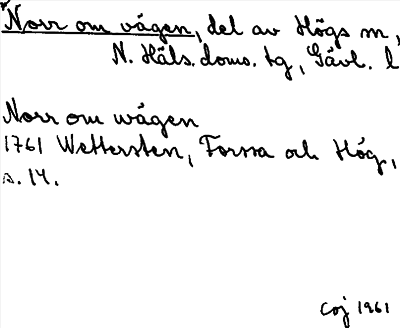 Norr om vägen, del av Högs m,
N. Häls. doms. tg, Gävl. l
Norr om wägen
1761 Wettersten, Forssa och Hög,
s. 14.
Coj 1961